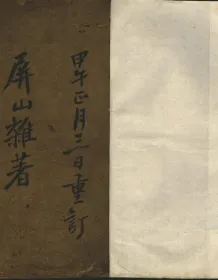 甲午正月三日重訂
屏山雜著